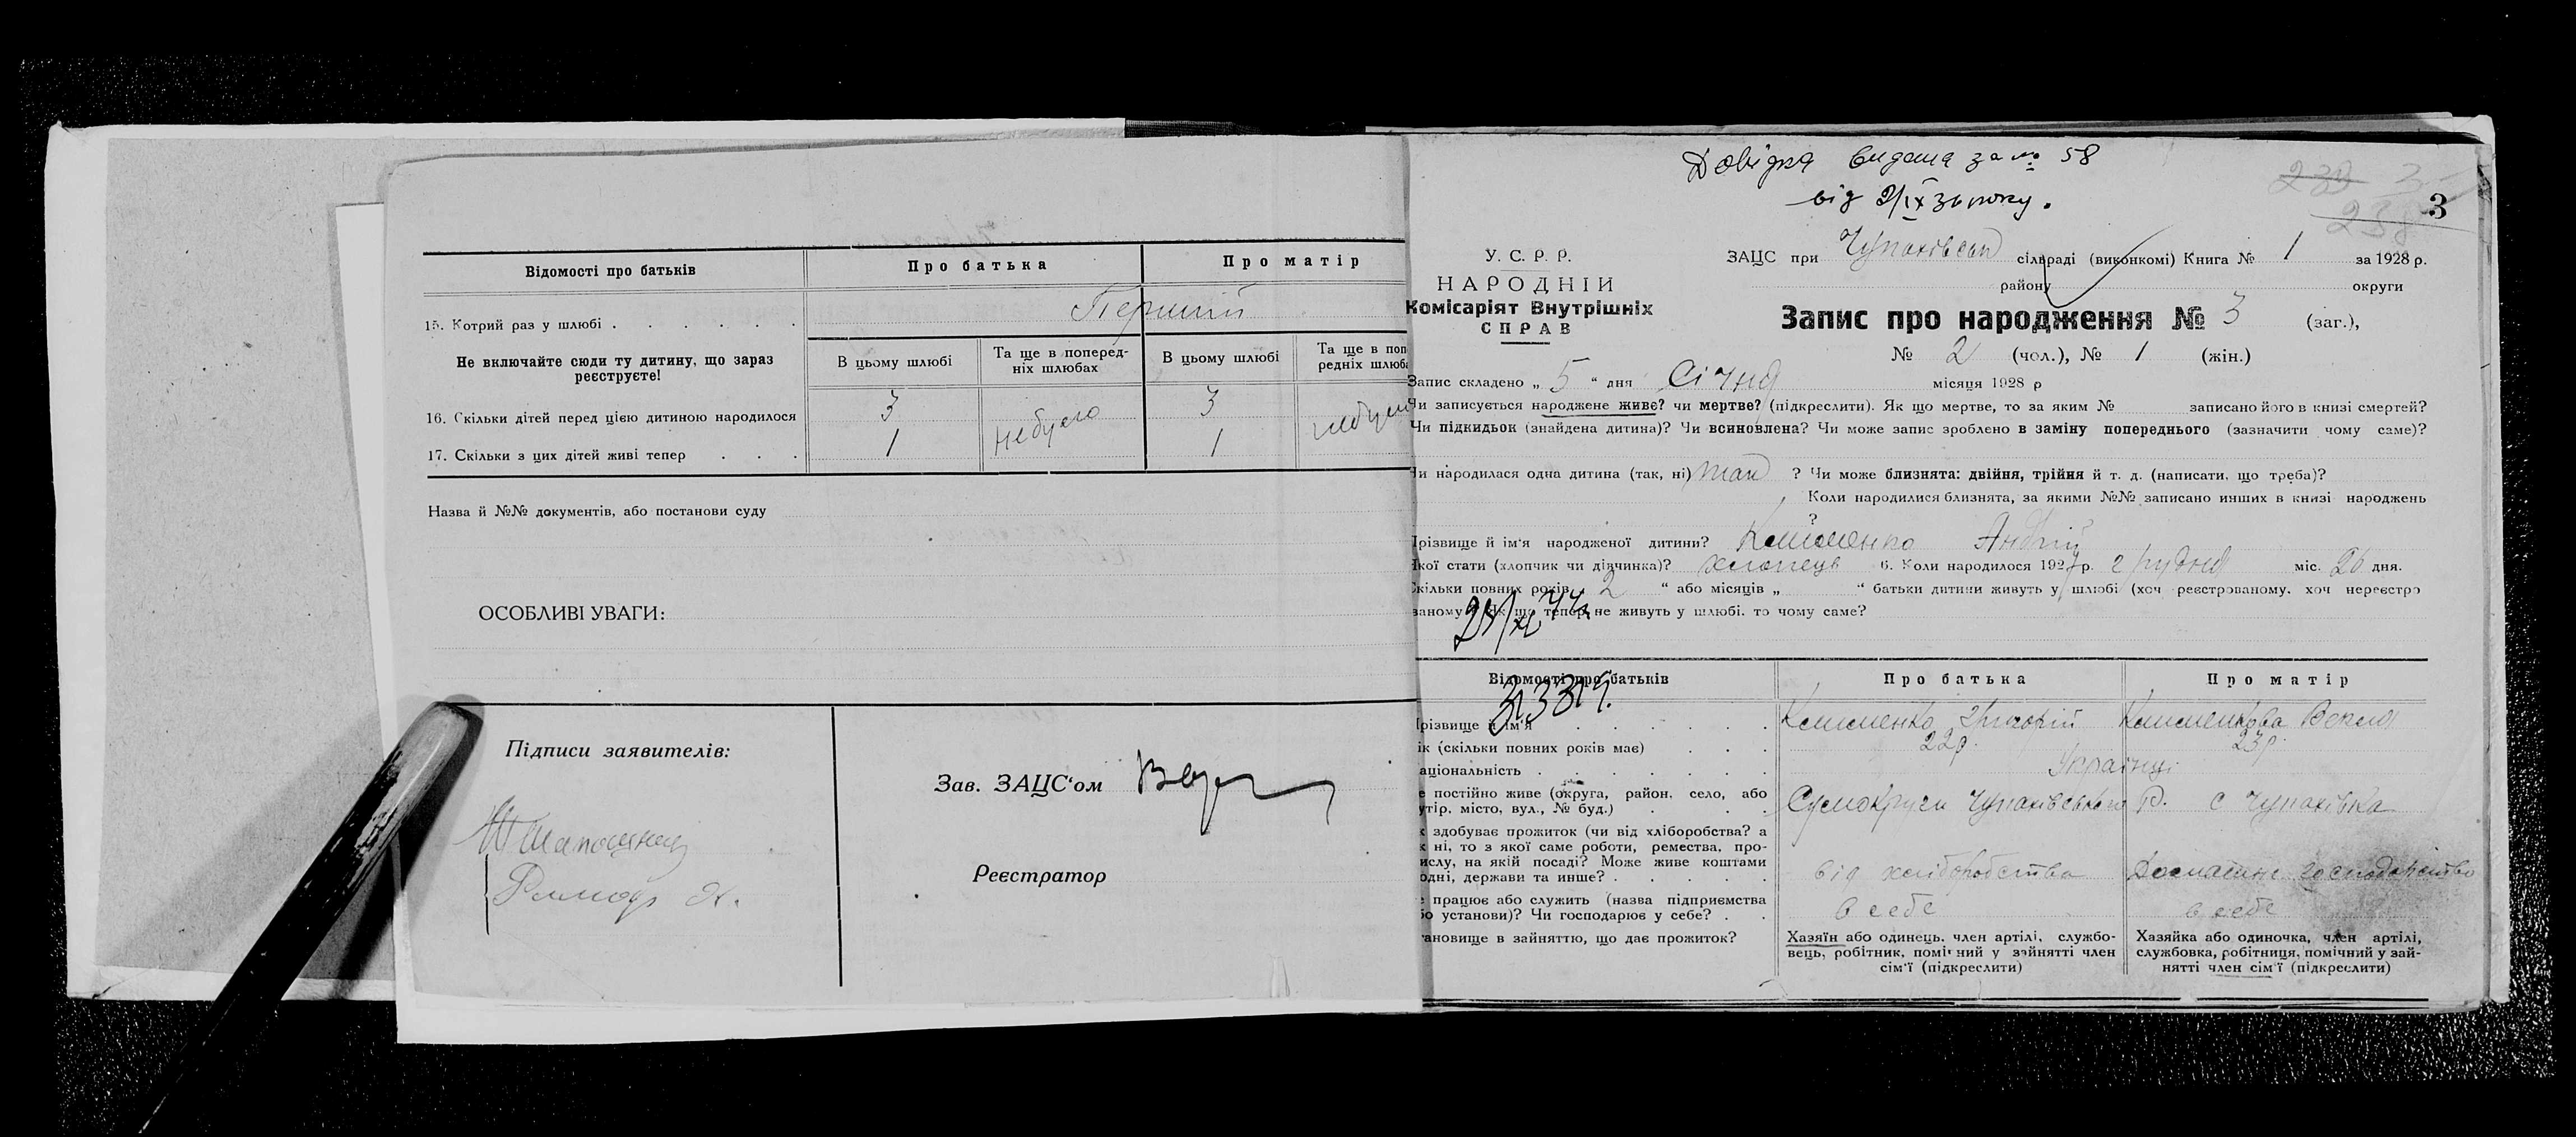 Відомості про батьків
Про батька
Про матір
15. Котрий раз у шлюбі
Перший
Не включайте сюди ту дитину, що зараз реєструєте!
В цьому шлюбі
Та ще в поперед-
ніх шлюбах
В цьому шлюбі
Та ще в поп
редніх шлюба
16. Скільки дітей перед цією дитиною народилося 3 не було 3
17. Скільки з цих дітей живі тепер 1 1
Назва й №№ документів, або постанови суду
ОСОБЛИВІ УВАГИ:
Підписи заявителів:
Зав. ЗАЦС'ом
Реєстратор
Довідка видана за № 58
від 2/IX 36 року.
3
У. С. Р. Р.
НАРОДНІЙ
Комісаріят Внутрішніх
СПРАВ
ЗАЦС при Чупахівськ сільраді (виконкомі) Книга № 1 за 1928 р.
району округи
Запис про народження № 3 (заг.),
№ 2 (чол.), № 1 (жін.)
Запис складено „ 5 “ дня Січня місяця 1928 р
Чи записується народжене живе? чи мертве? (підкреслити). Як що мертве, то за яким № записано його в книзі смертей?
Чи підкидьок (знайдена дитина)? Чи всиновлена? Чи може запис зроблено в заміну попереднього (зазначити чому саме)?
Чи народилася одна дитина (так, ні) так ? Чи може близнята: двійня, трійня й т. д. (написати, що треба)?
Коли народилися близнята, за якими №№ записано инших в книзі народжень
?
різвище й ім'я народженої дитини? Клименко Андрій
кої стати (хлопчик чи дівчинка)? хлопець 6. Коли народилося 1927 р. грудня міс. 26 дня.
Скільки повних років „ 2 “ або місяців „ “ батьки дитини живуть у шлюбі (хоч реєстрованому, хоч нереєстро
ваному)? Як що тепер не живуть у шлюбі, то чому саме?
Відомості про батьків
Про батька
Про матір
різвище й ім'я Клименко Григорій Клименкова Векла
ік (скільки повних років має) 22р. 23р.
аціональність Українці
е постійно живе (округа, район, село, або
утір, місто, вул., № буд.) Сумокруги Чупахівського Р. с Чупахівка
к здобуває прожиток (чи від хліборобства? а
к ні, то з якої саме роботи, ремества, про-
ислу, на якій посаді? Може живе коштами
одні, держави та инше?
від хліборобства Домашнє господарство
е працює або служить (назва підприємства
бо установи)? Чи господарює у себе?
в себе в себе
тановище в зайняттю, що дає прожиток?
Хазяїн або одинець, член артілі, службо-
вець, робітник, помічний у зайнятті член
сім'ї (підкреслити)
Хазяйка або одиночка, член артілі,
службовка, робітниця, помічний у зай-
нятті член сім'ї (підкреслити)